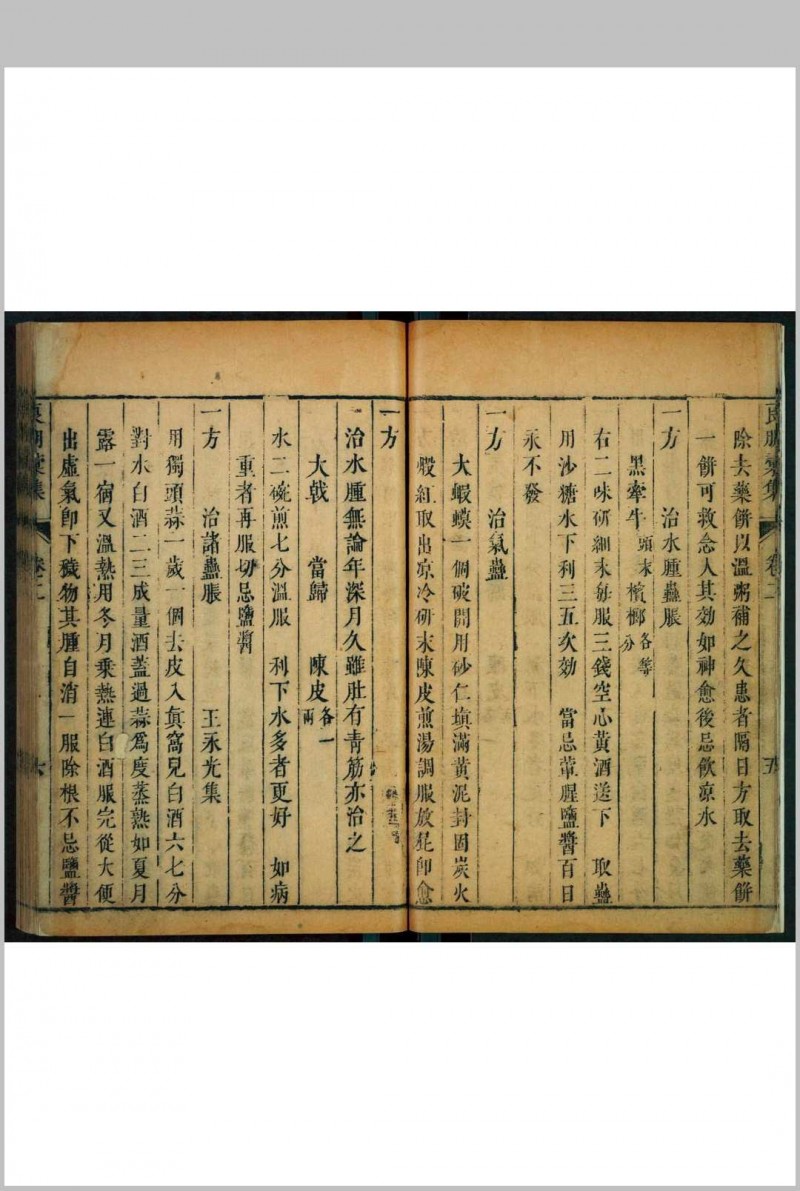 良朋彙集 卷二 五
除去藥餅以溫粥補之久患者隔日方取去藥餅
一餅可救念人其効如神愈後忌飲凉水
一方 治水腫蠱脹
黑牽牛頭末 檳榔各等分
右二味研細末每服三錢空心黃酒送下 取蠱
用沙糖水下利三五次効 當忌葷腥鹽醬百日
永不發
一方 治氣蠱
大蝦蟆一個破開用砂仁填滿黃泥封固炭火
煅紅取出凉冷研末陳皮煎湯調服放屁即愈
一方
治水腫無論年深月久雖肚有青筋亦治之
大戟 當歸 陳皮各一兩
水二碗煎七分溫服 利下水多者更好 如病
重者再服切忌鹽醬
一方 治諸蠱脹 王永光集
用獨頭蒜一歲一個去皮入眞窩兒白酒六七分
對水白酒二三成量酒蓋過蒜爲度蒸熟如夏月
露一宿又溫熱用冬月乗熱連白酒服完從大便
出虛氣即下穢物其腫自消一服除根不忌鹽醬
良朋彙集 卷二 六